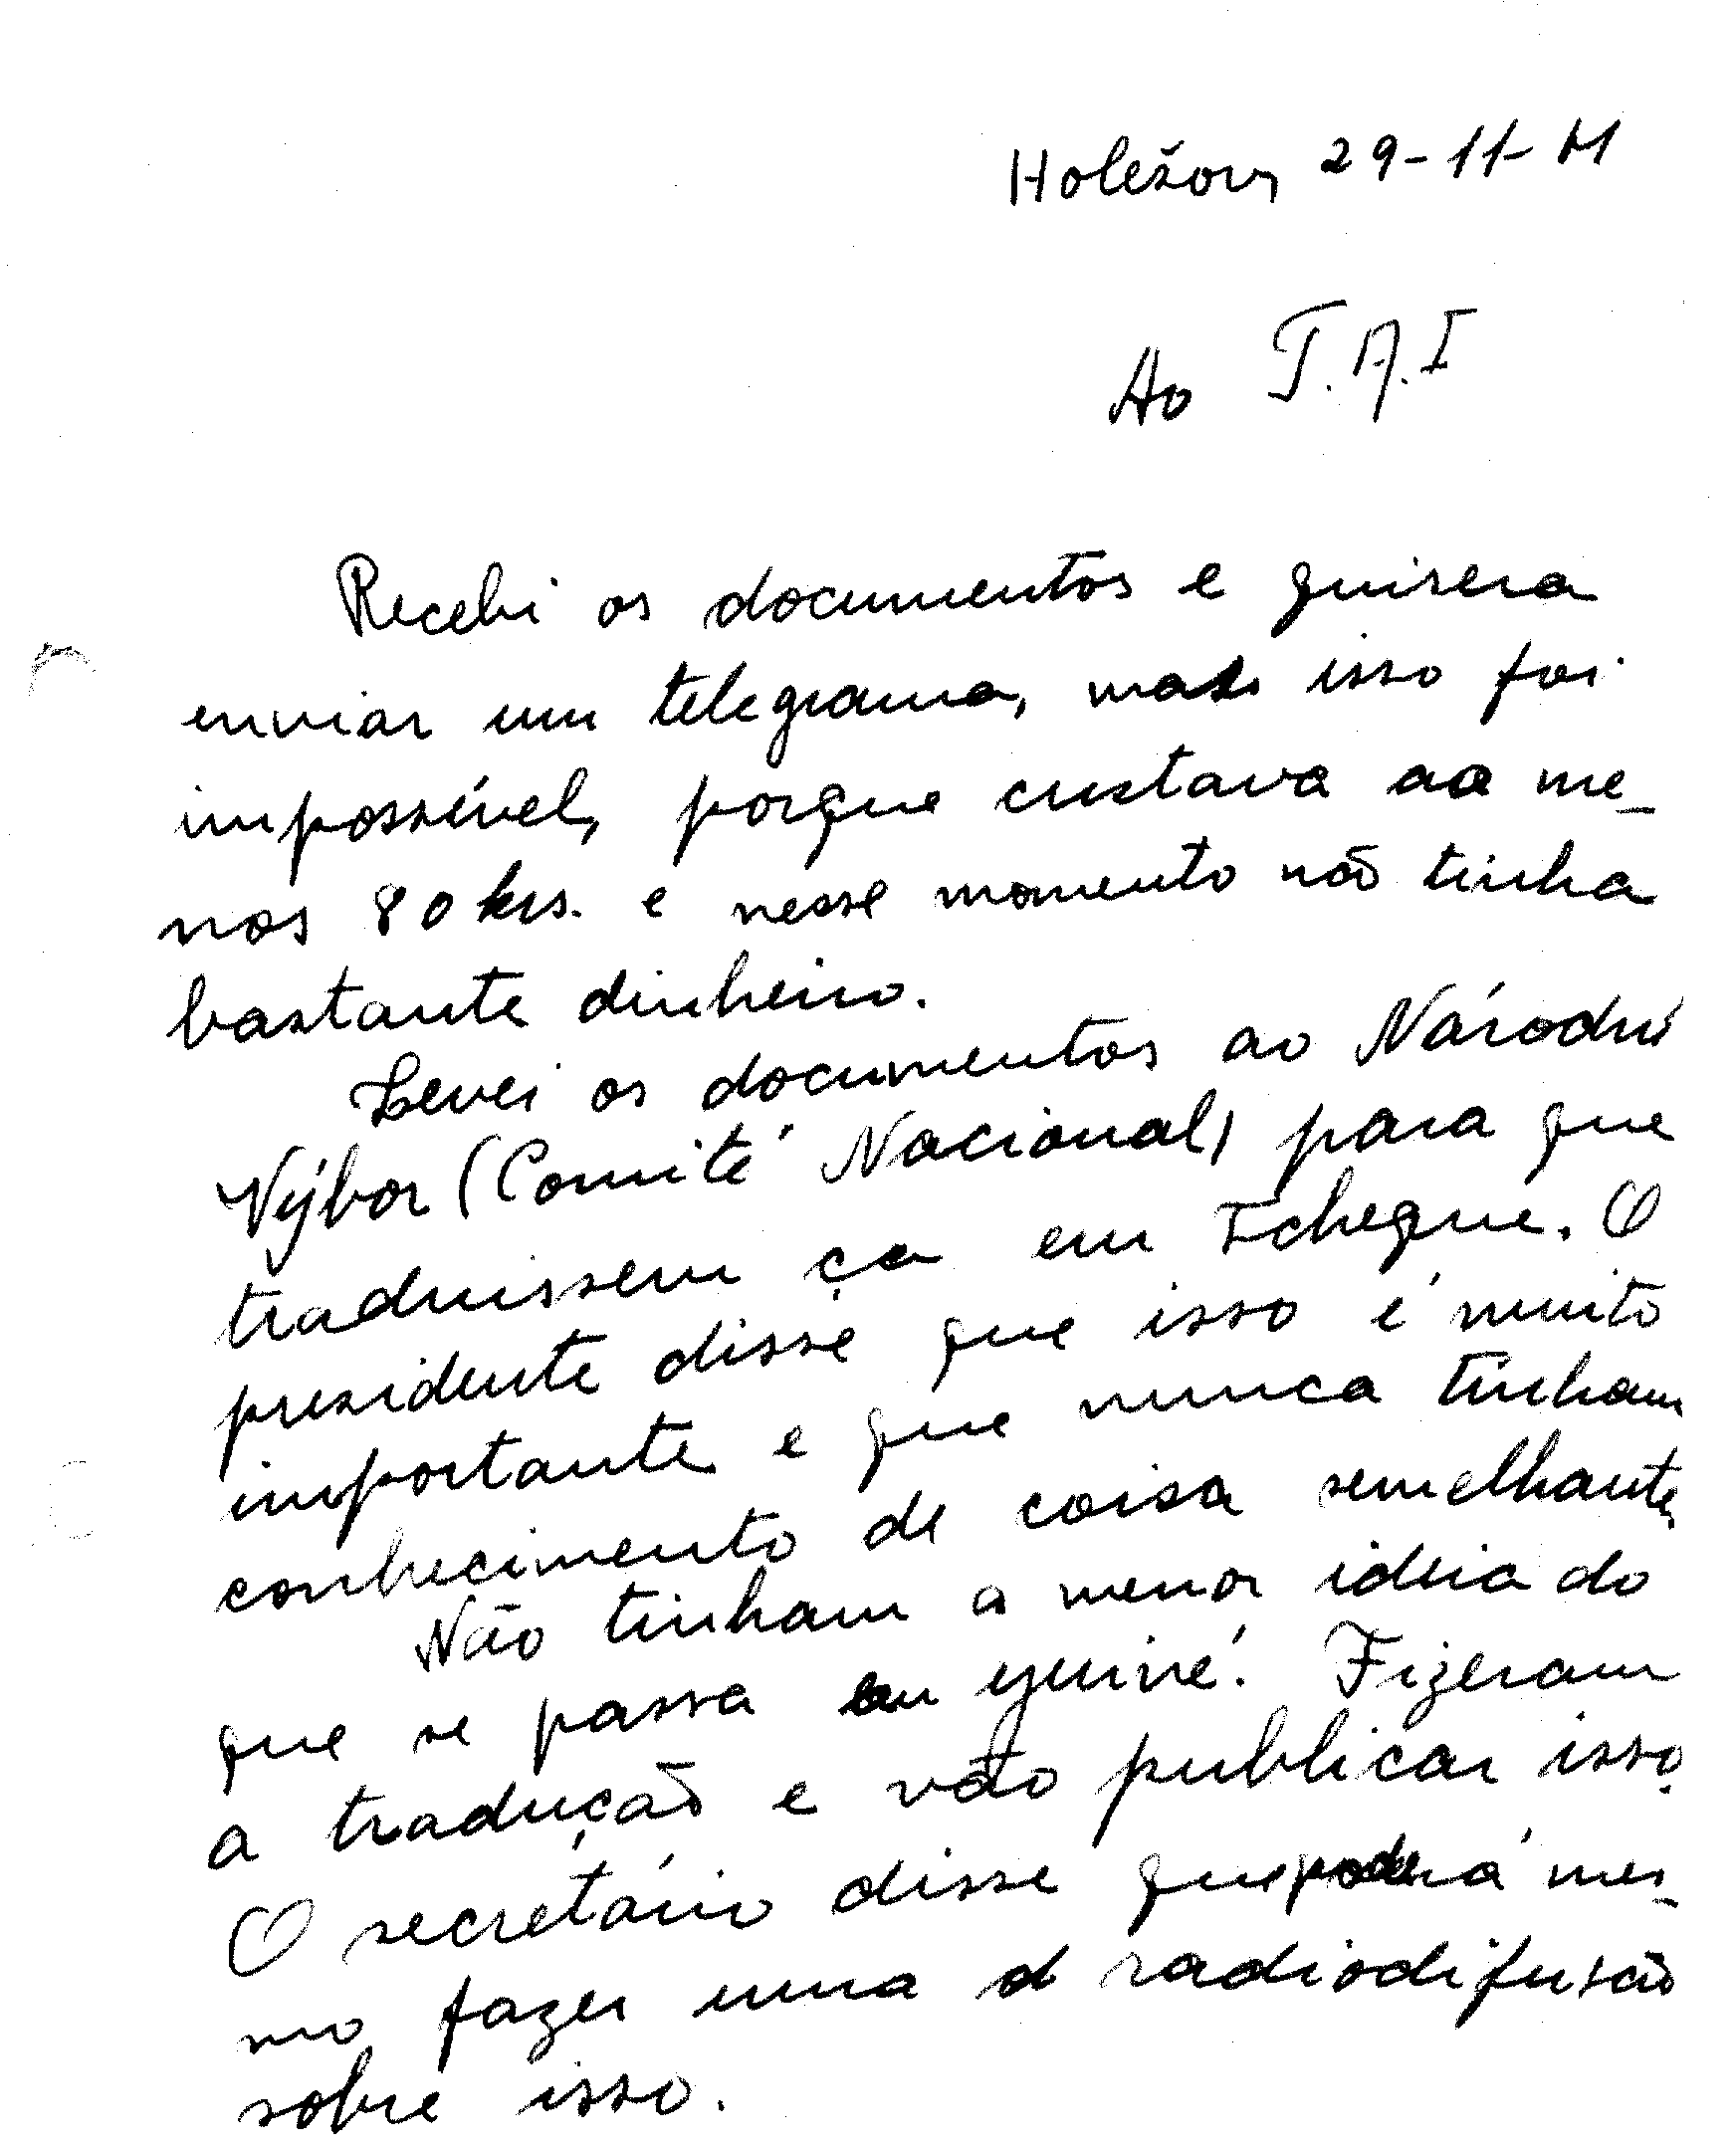 Holešov, 29-11-
Ao T.A.I
Recebi os documentos e quisera
enviar um telegrama, mas isso foi
impossível, porque custava ao me-
nos 80 krs. e nesse momento não tinha
bastante dinheiro.
Levei os documentos ao Národní
Výbor (Comité Nacional) para que
traduissem ça em Tcheque. O
presidente disse que isso é muito
importante e que nunca tinham
conhecimento de coisa semelhante.
Não tinham a menor ideia do
que se passa em guiné. Fizeram
a tradução e vão publicar isso.
O secretário disse que poderá mes-
mo fazer uma radiodifusão
sobre isso.